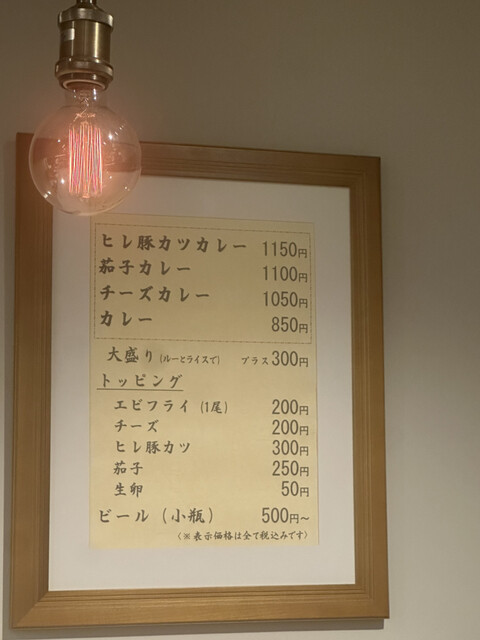 ヒレ豚カツカレー 1150円
茄子カレー 1100円
チーズカレー 1050円
カレー 850円
大盛り(ルーとライスで) プラス300円
トッピング
エビフライ(1尾) 200円
チーズ 200円
ヒレ豚カツ 300円
茄子 250円
生卵 50円
ビール(小瓶) 500円~
(※表示価格は全て税込みです)